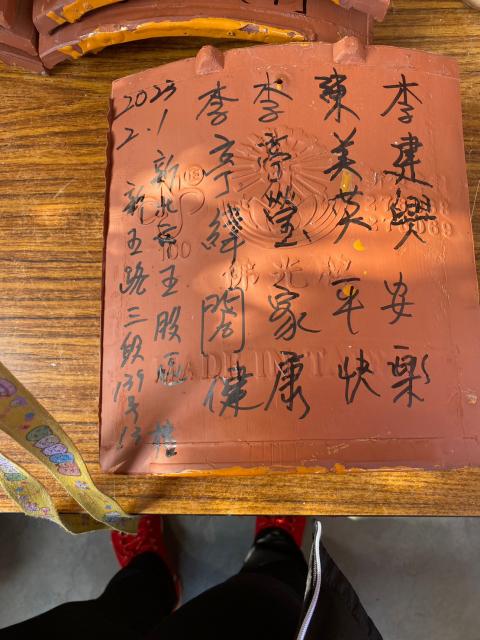 李建興安樂
東美英平快
李亭瑩家康
李亭緯闔健
2023
2.1
新北市五股區
新五路三段139号13樓
100
佛光
MADE IN TA